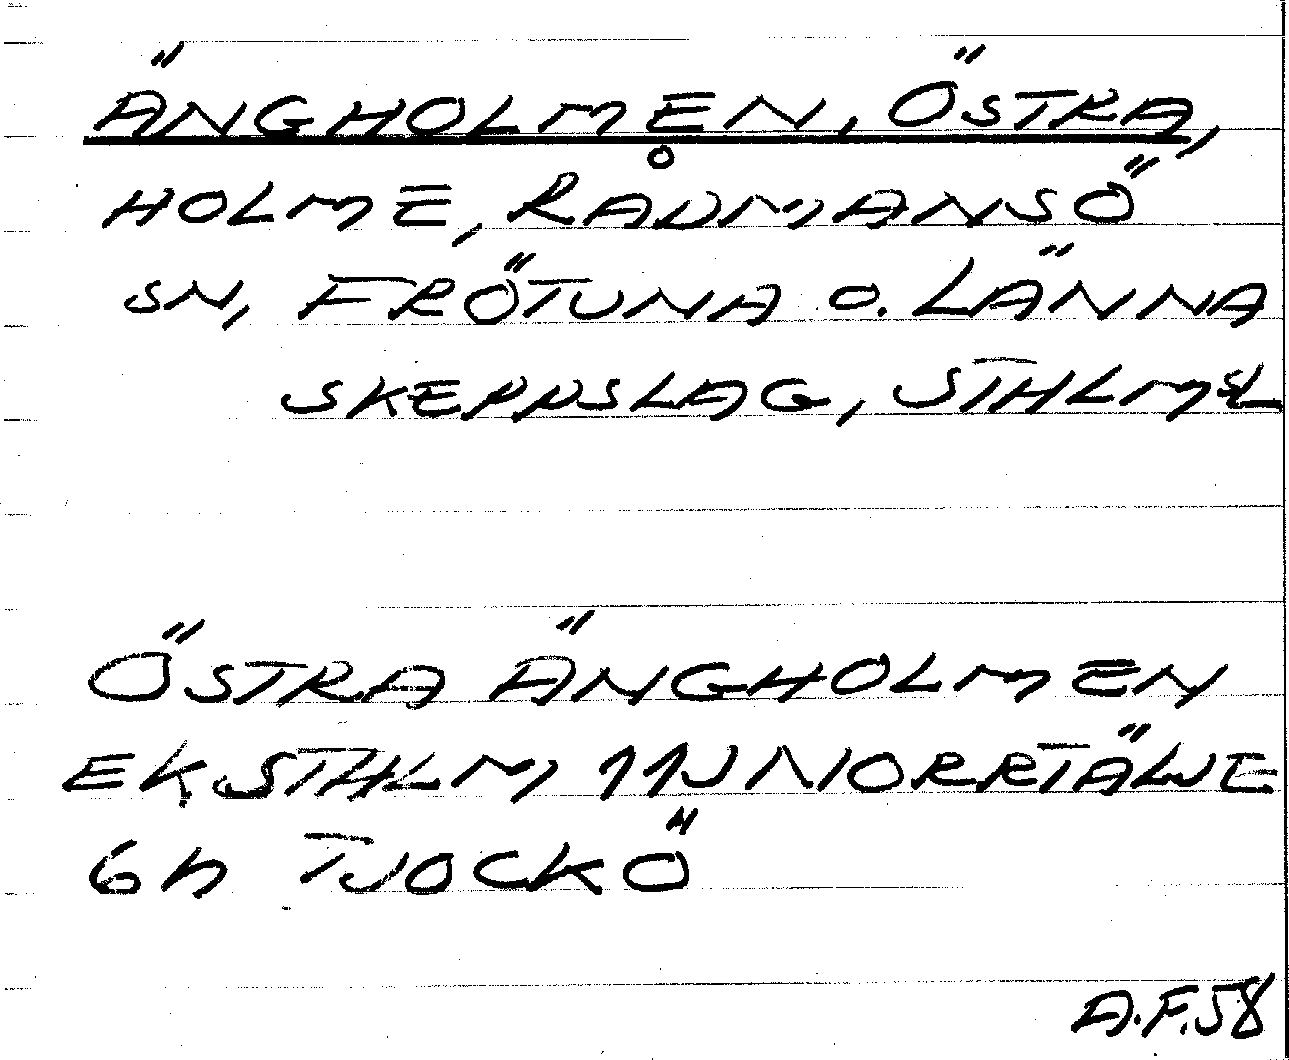 ÄNGHOLMEN, ÖSTRA,
HOLME, RÅDMANSÖ
SN, FRÖTUNA O. LÄNNA
SKEPPSLAG, STHLMSL
ÖSTRA ÄNGHOLMEN
EKSTHLM 11J NIORRTÄLJE
6h TJOCKÖ
A.F.58